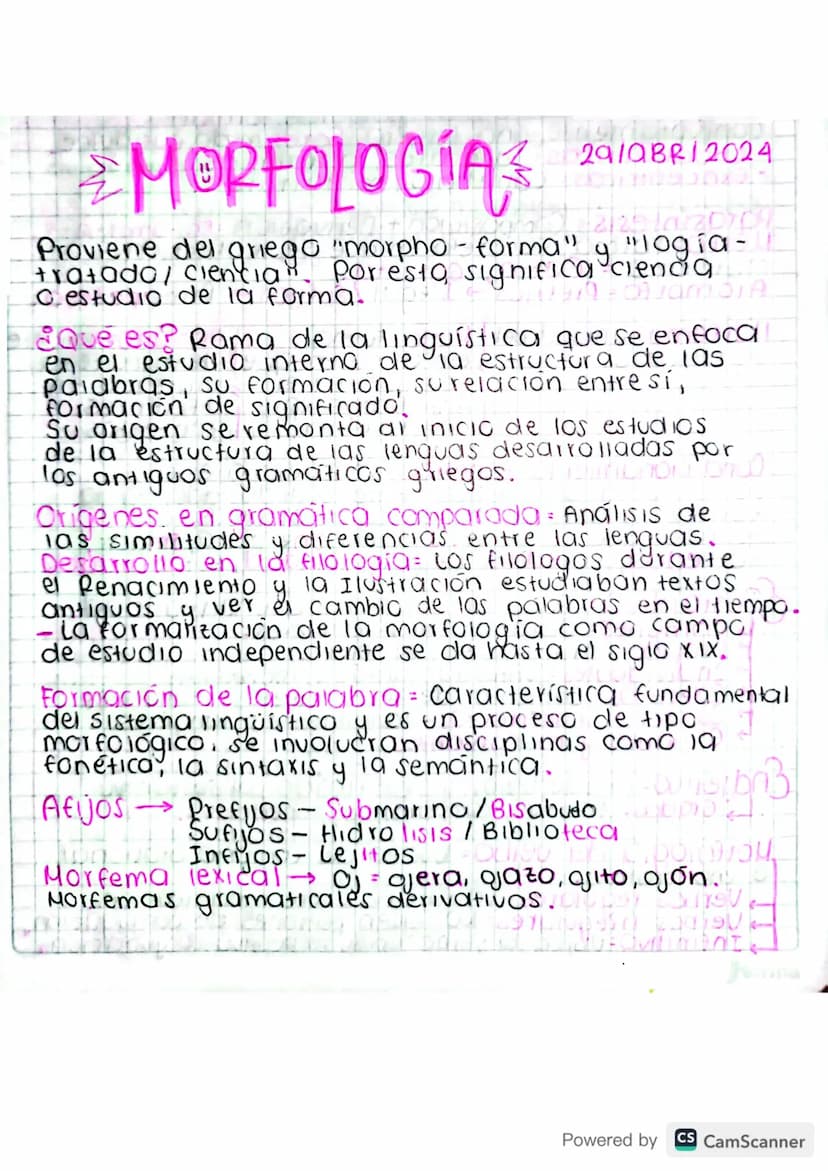 MORFOLOGÍA
29/ABR/2024
Proviene del griego "morpho-forma" y "logía-
tratado/ciencia". Por esto, significa ciencia
o estudio de la forma.
¿Qué es? Rama de la lingüística que se enfoca
en el estudio interno de la estructura de las
palabras, su formación, su relación entre sí,
formación de significado.
Su origen se remonta al inicio de los estudios
de la estructura de las lenguas desarrolladas por
los antiguos gramáticos griegos.
Orígenes en gramática comparada= Análisis de
las similitudes y diferencias entre las lenguas.
Desarrollo en la filología= Los filólogos durante
el Renacimiento y la Ilustración estudiaban textos
antiguos y ver el cambio de las palabras en el tiempo.
- La formalización de la morfología como campo
de estudio independiente se da hasta el siglo XIX.
Formación de la palabra= Característica fundamental
del sistema lingüístico y es un proceso de tipo
morfológico. Se involucran disciplinas como la
fonética, la sintaxis y la semántica.
Afijos → Prefijos - Submarino/Bisabudo
Sufijos - Hidrolisis / Biblioteca
Infijos - Lejitos
Morfema lexical → Oj = ojera, ojazo, ojito, ojón.
Morfemas gramaticales derivativos.
Powered by CS CamScanner